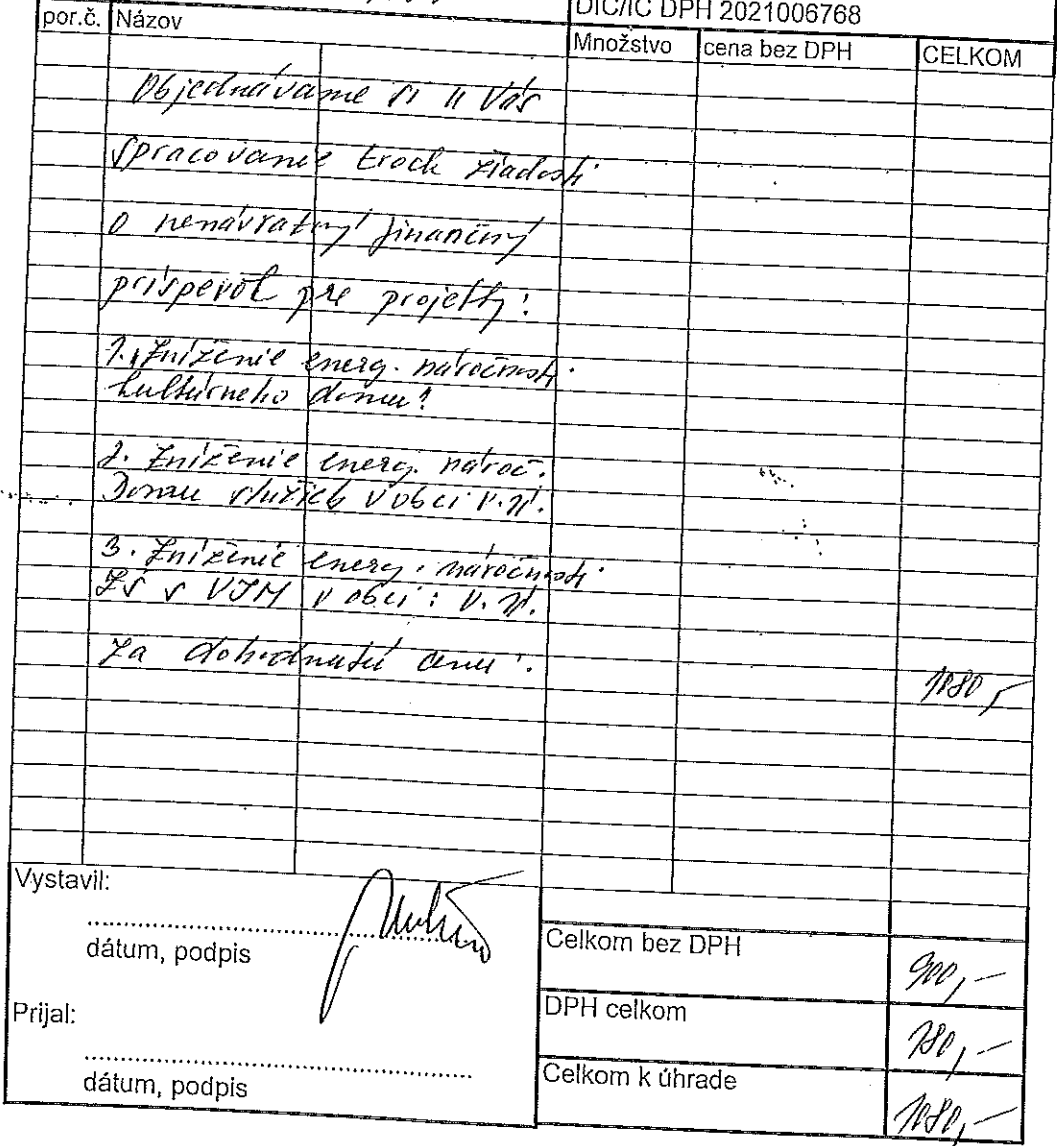 DIČ/IČ DPH 2021006768
por.č. Názov
Množstvo cena bez DPH CELKOM
Objednávame si u Vás
spracovanie troch žiadosti
o nenávratný finančný
príspevok pre projekty:
1. Zníženie energ. náročnosti
kultúrneho domu!
2. Zníženie energ. nároč.
Domu služieb v obci V.
3. Zníženie energ. náročnosti
ZŠ s VJM v obci: V.
Za dohodnutú cenu:
1080,-
Vystavil:
dátum, podpis
Celkom bez DPH 900,-
Prijal:
DPH celkom 180,-
dátum, podpis
Celkom k úhrade 1080,-